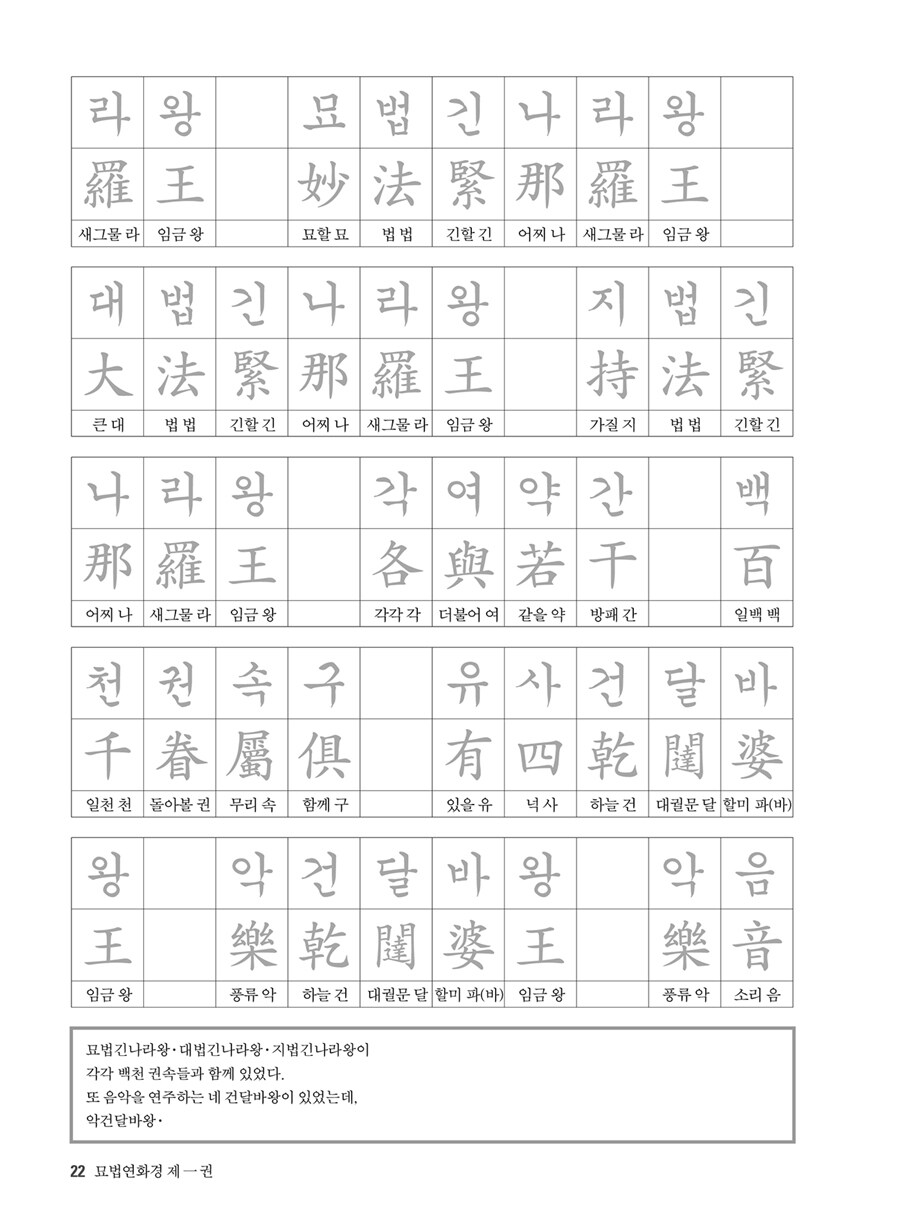 라 왕 묘 법 긴 나 라 왕
羅 王 妙 法 緊 那 羅 王
새그물 라 임금 왕 묘할 묘 법 법 긴할 긴 어찌 나 새그물 라 임금 왕
대 법 긴 나 라 왕 지 법 긴
大 法 緊 那 羅 王 持 法 緊
큰 대 법 법 긴할 긴 어찌 나 새그물 라 임금 왕 가질 지 법 법 긴할 긴
나 라 왕 각 여 약 간 백
那 羅 王 各 與 若 干 百
어찌 나 새그물 라 임금 왕 각각 각 더불어 여 같을 약 방패 간 일백 백
천 권 속 구 유 사 건 달 바
千 眷 屬 俱 有 四 乾 闥 婆
일천 천 돌아볼 권 무리 속 함께 구 있을 유 넉 사 하늘 건 대궐문 달 할미 파(바)
왕 악 건 달 바 왕 악 음
王 樂 乾 闥 婆 王 樂 音
임금 왕 풍류 악 하늘 건 대궐문 달 할미 파(바) 임금 왕 풍류 악 소리 음
묘법긴나라왕·대법긴나라왕·지법긴나라왕이
각각 백천 권속들과 함께 있었다.
또 음악을 연주하는 네 건달바왕이 있었는데,
악건달바왕·
22 묘법연화경 제一권